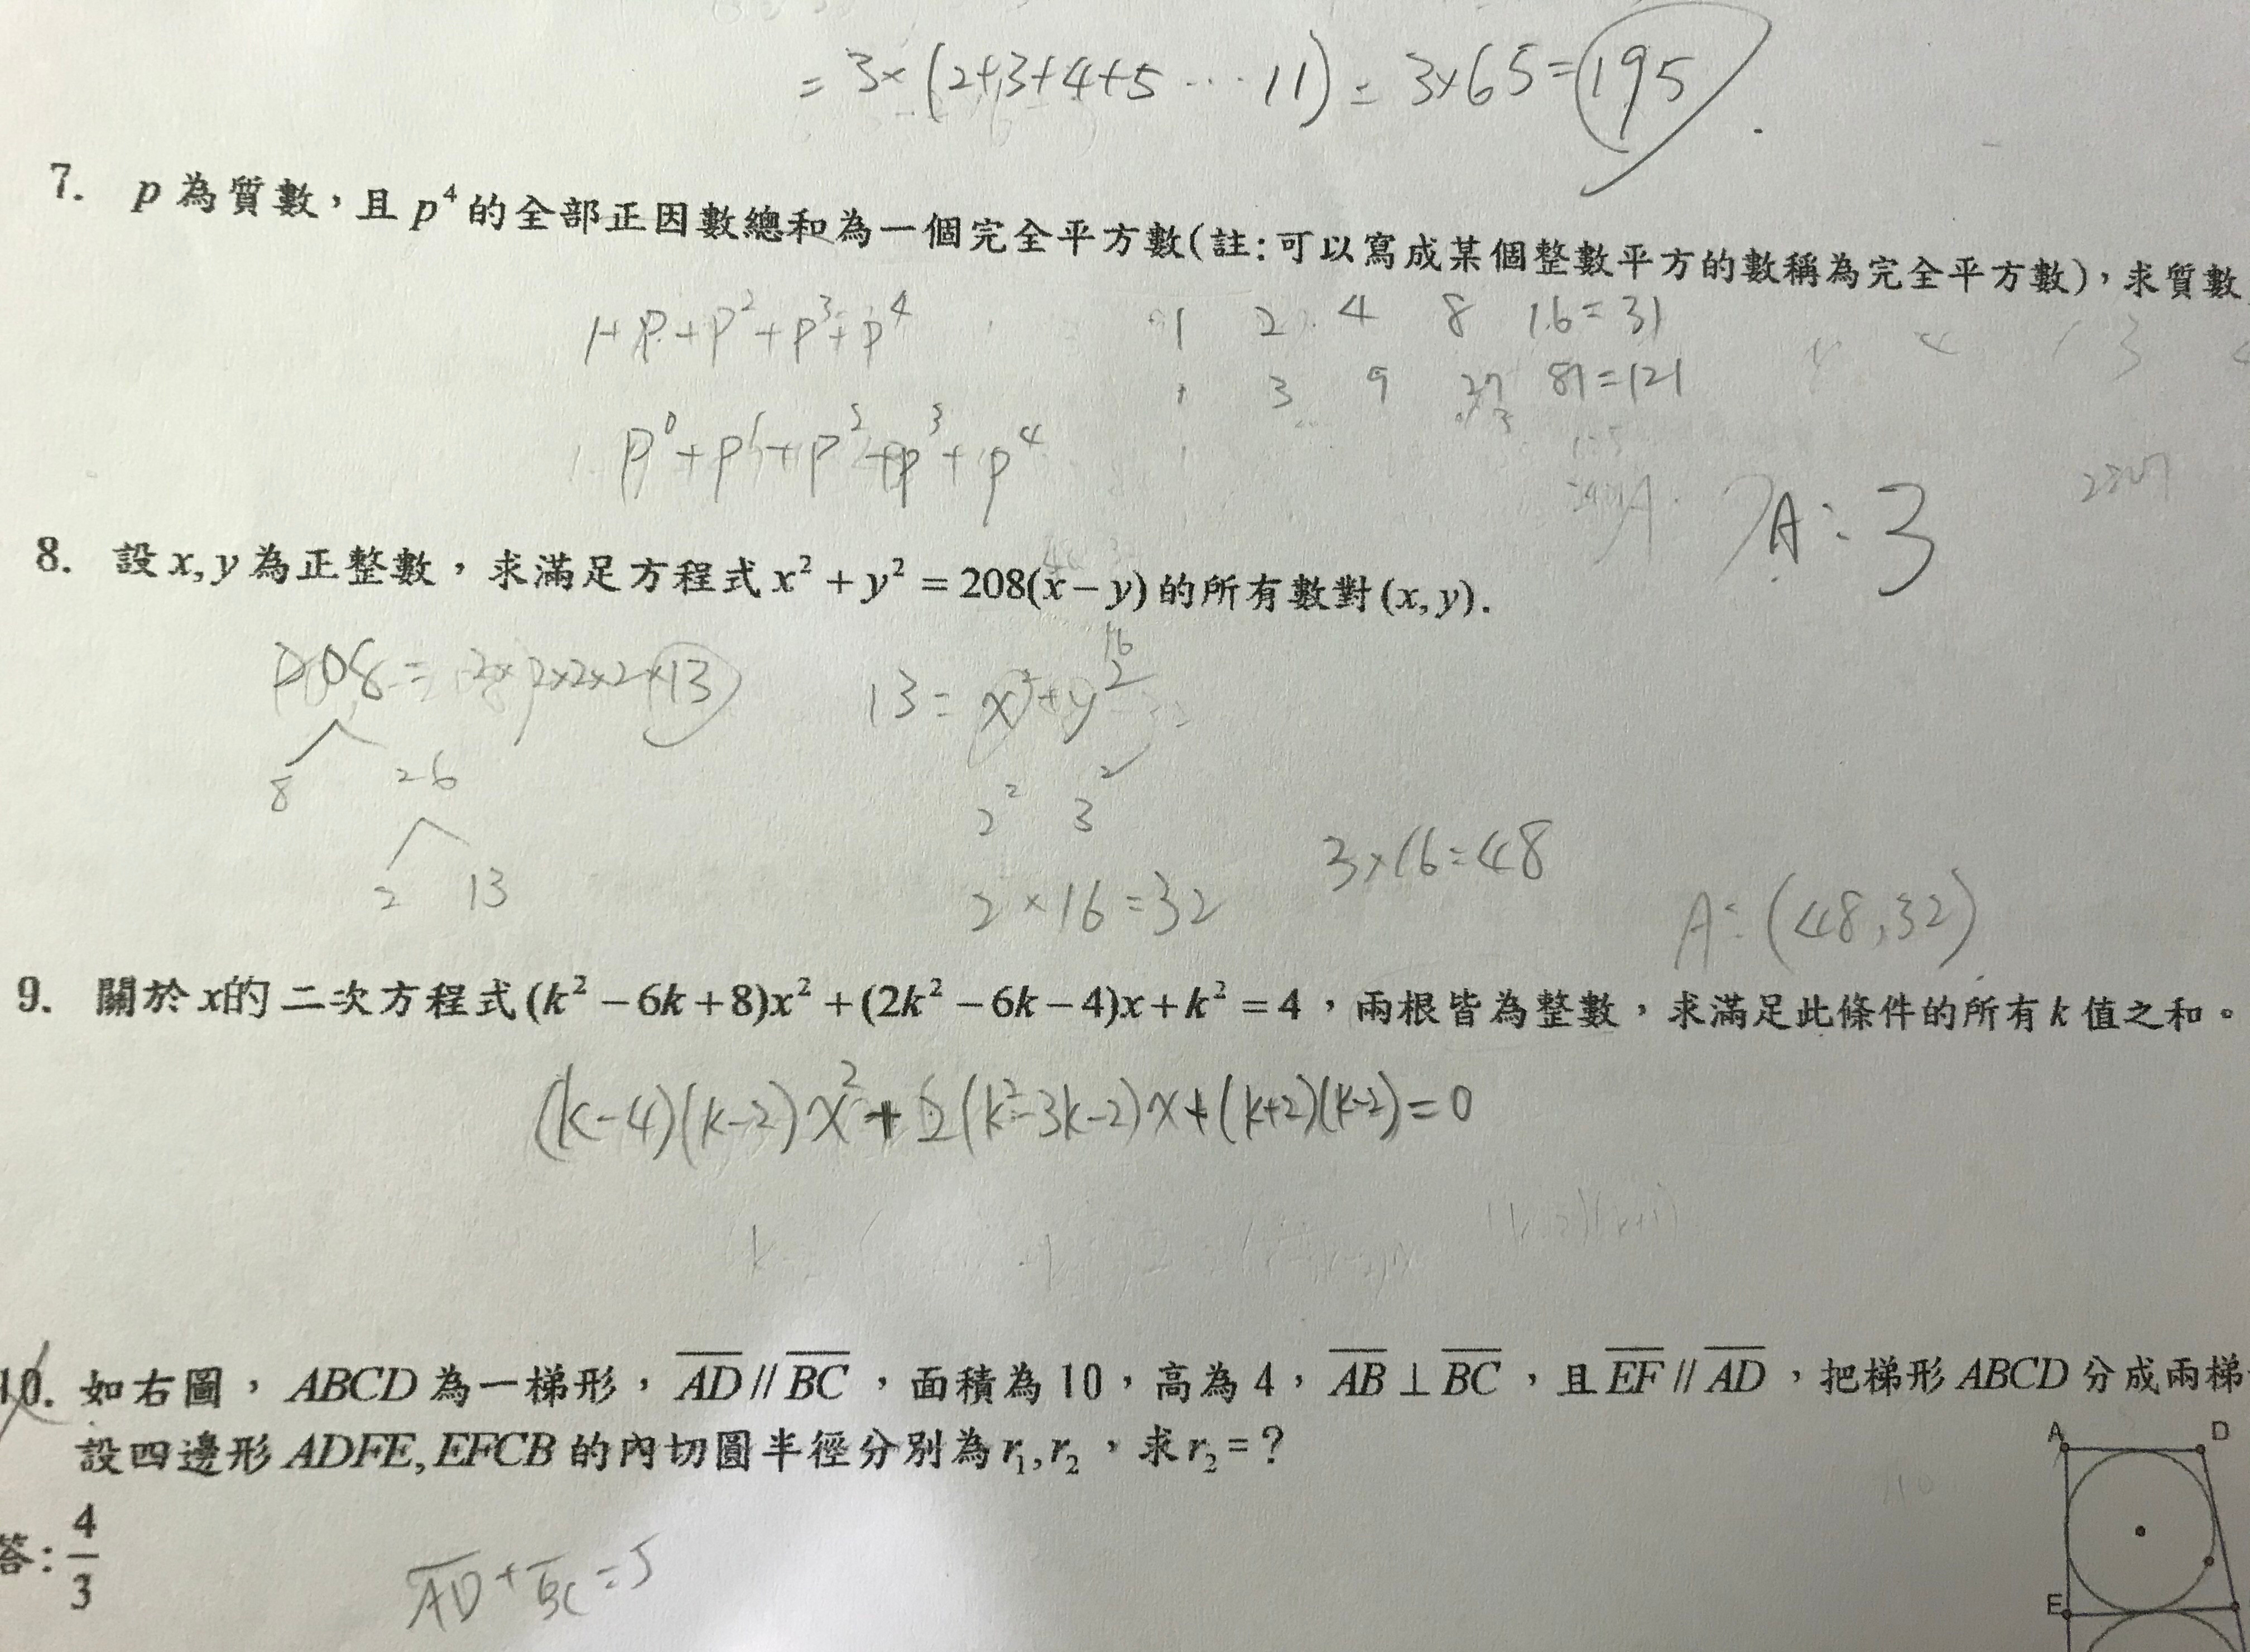 = 3×(2+3+4+5 ... 11) = 3×65 = 195
7. p 為質數，且 p⁴ 的全部正因數總和為一個完全平方數(註:可以寫成某個整數平方的數稱為完全平方數)，求質數
1+P+P²+P³+P⁴
1 2 4 8 16=31
1 3 9 27 81=121
P⁰+P¹+P²+P³+P⁴
A:3
8. 設 x, y 為正整數，求滿足方程式 x² + y² = 208(x − y) 的所有數對 (x, y).
208 = 2×2×2×2×13
13 = x²+y²
16
8 26
2² 3²
2 13
2×16=32
3×16=48
A:(48,32)
9. 關於 x的 二次方程式 (k² − 6k + 8)x² + (2k² − 6k − 4)x + k² = 4，兩根皆為整數，求滿足此條件的所有 k 值之和。
(k-4)(k-2)x²+2(k²-3k-2)x+(k+2)(k-2)=0
10. 如右圖，ABCD 為一梯形，AD // BC，面積為 10，高為 4，AB ⊥ BC，且 EF // AD，把梯形 ABCD 分成兩梯
設四邊形 ADFE, EFCB 的內切圓半徑分別為 r₁, r₂，求 r₂ = ?
A D
E
答: 4/3
AD + BC = 5